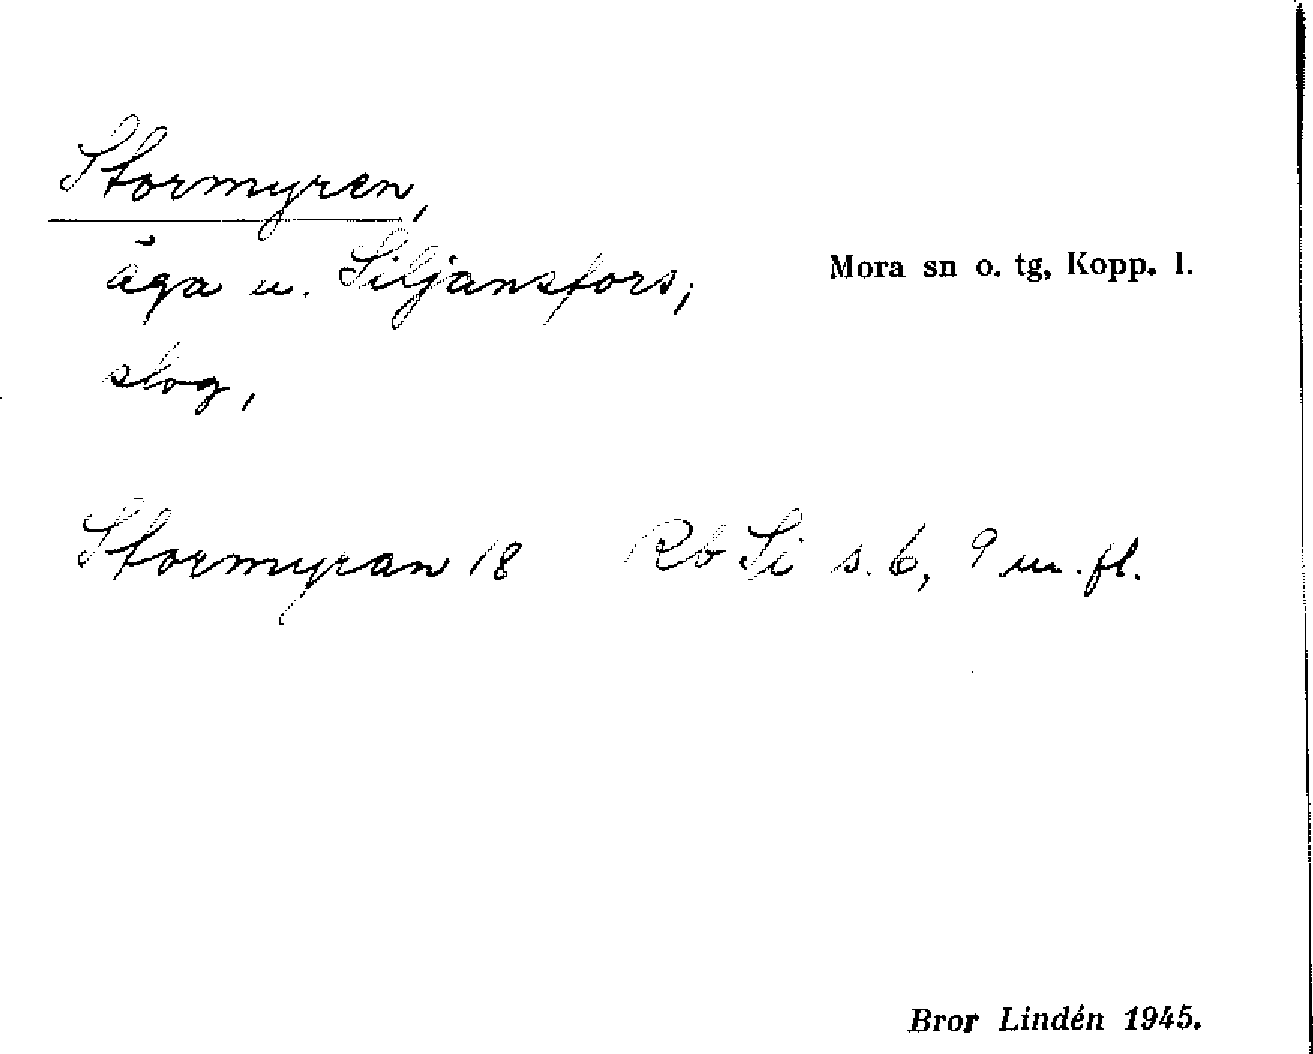 Stormyren,
äga u. Siljansfors;
Mora sn o. tg, Kopp. l.
slog,
Stormyran 18 Rb Si s. 6, 9 m. fl.
Bror Lindén 1945.